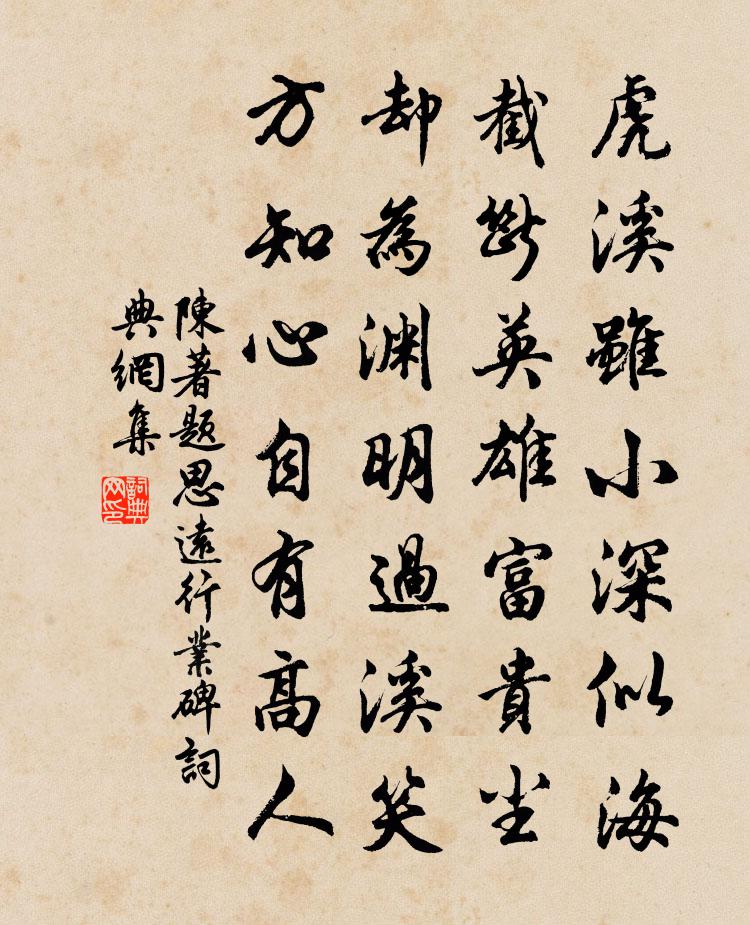 虎溪雖小深似海
截斷英雄富貴尘
却為渊明過溪笑
方知心自有高人
陳著題思遠行業碑詞
典網集
詞典网印